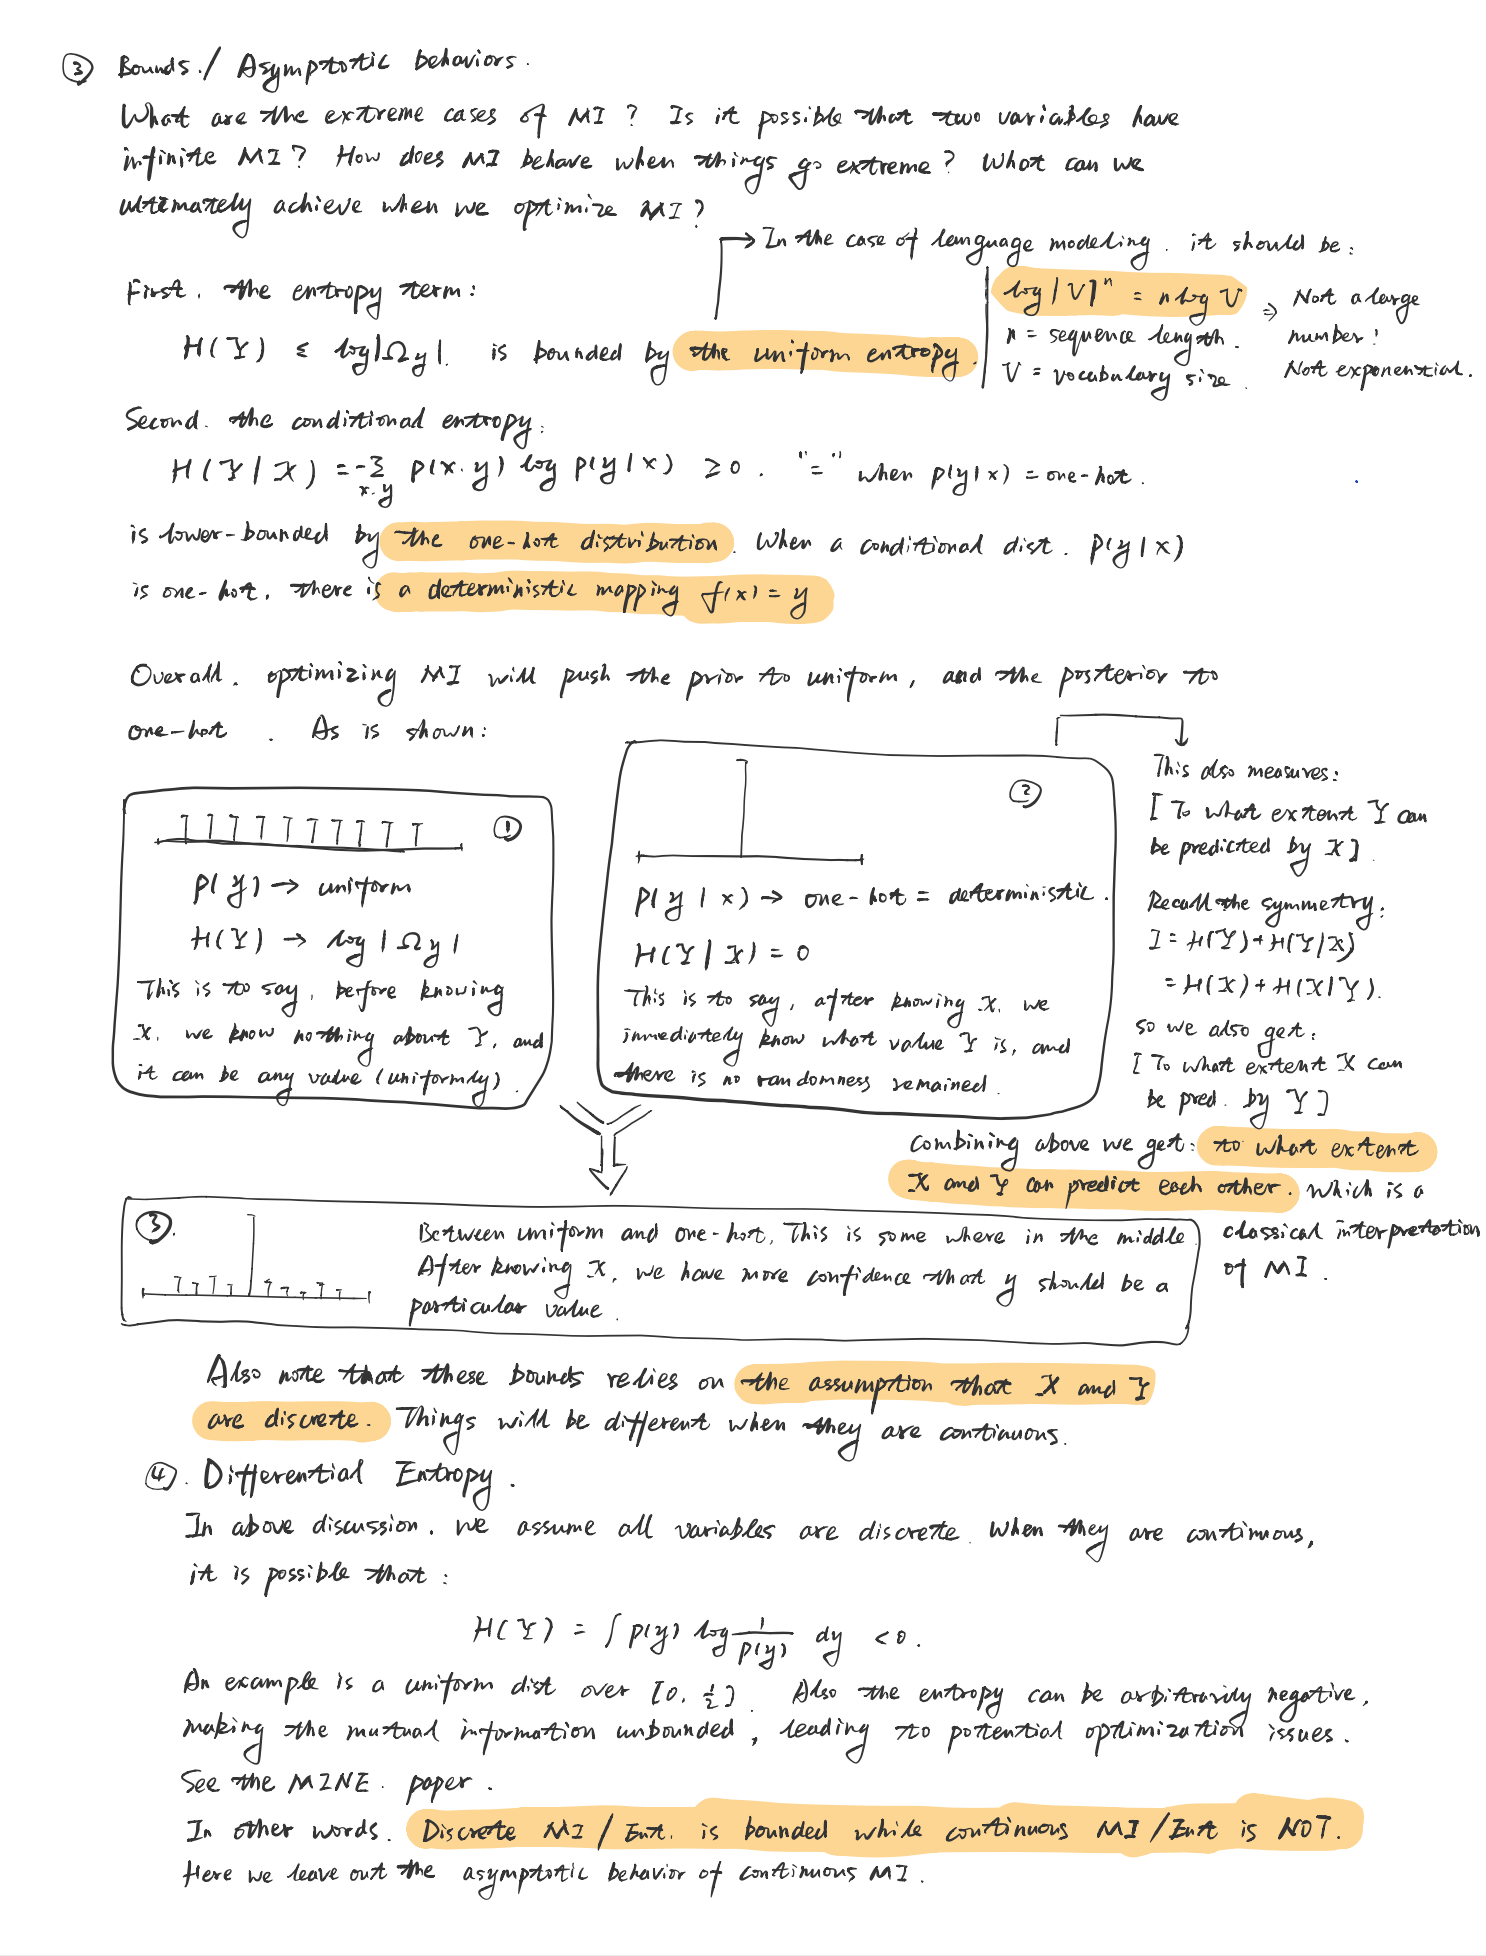 ③ Bounds. / Asymptotic behaviors.
What are the extreme cases of MI ? Is it possible that two variables have
infinite MI ? How does MI behave when things go extreme ? What can we
ultimately achieve when we optimize MI ?
→ In the case of language modeling. it should be :
First. the entropy term :
log |V|ⁿ = n log V ⇒ Not a large
n = sequence length. number !
V = vocabulary size. Not exponential.
H(Y) ≤ log|Ωy|. is bounded by the uniform entropy.
Second. the conditional entropy :
H(Y|X) = -Σ p(x.y) log p(y|x) ≥ 0. "=" when p(y|x) = one-hot.
x.y
is lower-bounded by the one-hot distribution. When a conditional dist. p(y|x)
is one-hot, there is a deterministic mapping f(x) = y
Overall. optimizing MI will push the prior to uniform, and the posterior to
one-hot . As is shown :
①
p(y) → uniform
H(Y) → log |Ωy|
This is to say, before knowing
X, we know nothing about Y, and
it can be any value (uniformly).
②
p(y|x) → one-hot = deterministic.
H(Y|X) = 0
This is to say, after knowing X, we
immediately know what value Y is, and
there is no randomness remained.
This also measures :
[ To what extent Y can
be predicted by X ]
Recall the symmetry :
I = H(Y) + H(Y|X)
= H(X) + H(X|Y).
so we also get :
[ To what extent X can
be pred. by Y ]
Combining above we get : to what extent
X and Y can predict each other. which is a
classical interpretation
of MI .
③.
Between uniform and one-hot, This is some where in the middle.
After knowing X, we have more confidence that y should be a
particular value.
Also note that these bounds relies on the assumption that X and Y
are discrete. Things will be different when they are continuous.
④. Differential Entropy .
In above discussion. we assume all variables are discrete. When they are continuous,
it is possible that :
H(Y) = ∫ p(y) log 1/p(y) dy < 0.
An example is a uniform dist over [0, ½]. Also the entropy can be arbitrarily negative,
making the mutual information unbounded, leading to potential optimization issues.
See the MINE. paper.
In other words. Discrete MI / Ent. is bounded while continuous MI / Ent is NOT.
Here we leave out the asymptotic behavior of continuous MI.